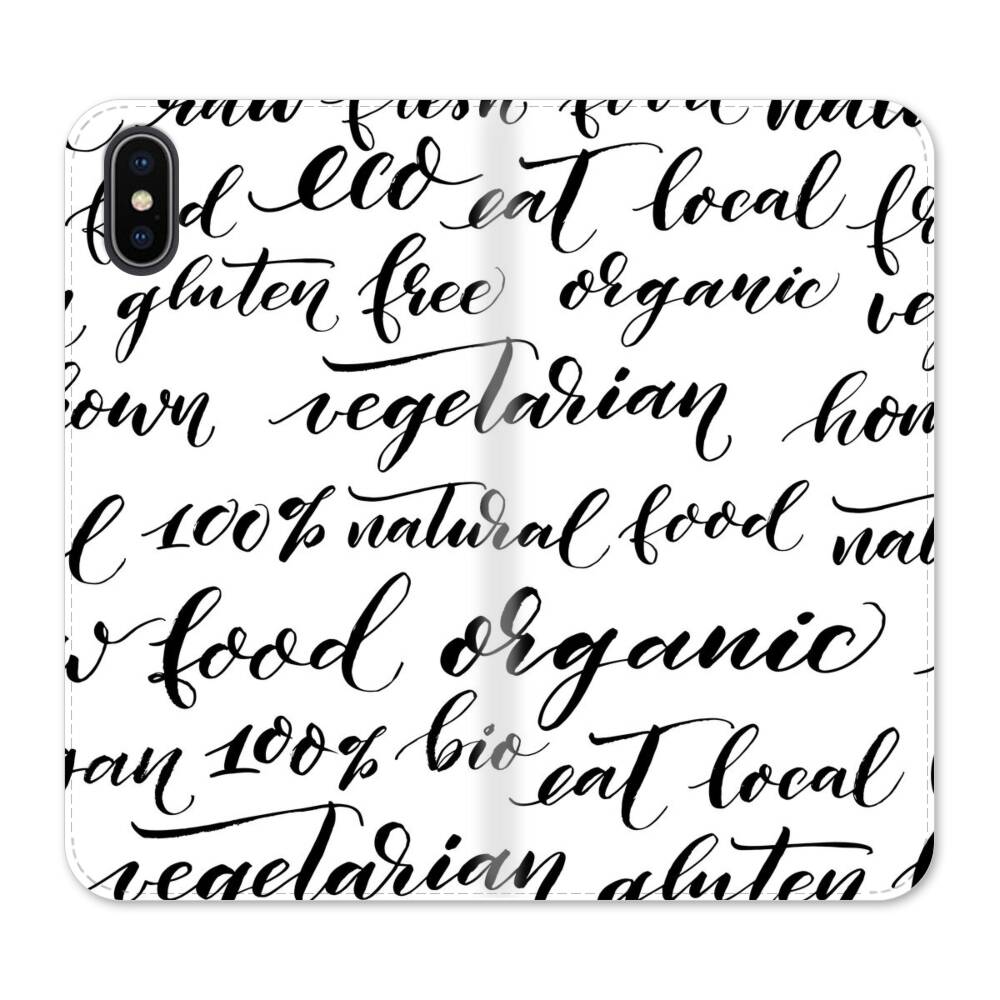 raw fresh food natu
food eco eat local fr
gluten free organic ve
own vegetarian hom
l 100% natural food nat
w food organic
gan 100% bio eat local
vegetarian gluten f